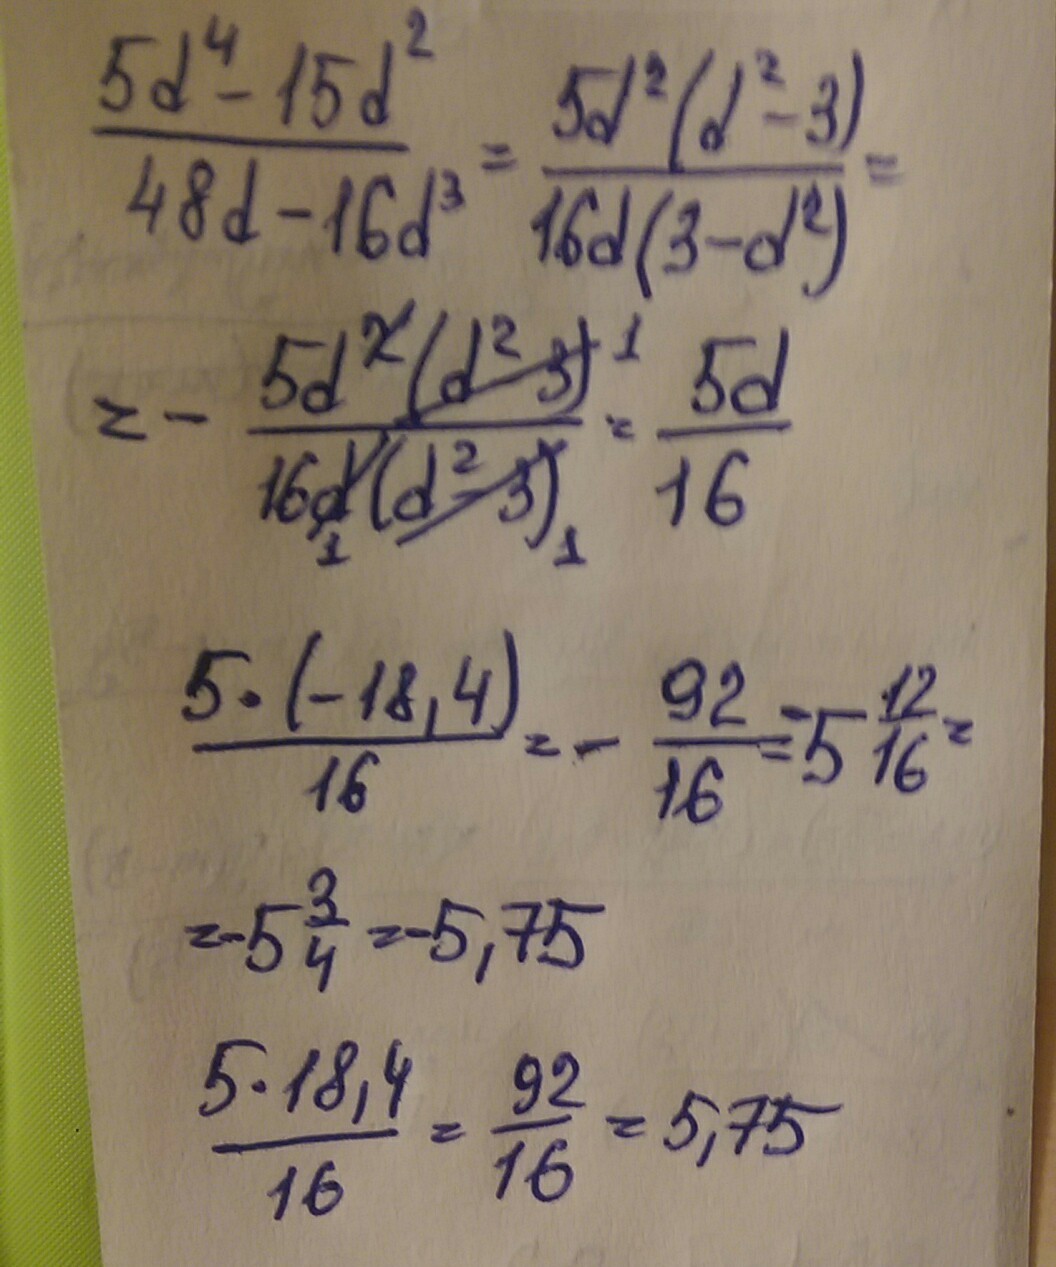 (5d⁴ - 15d²)/(48d - 16d³) = 5d²(d² - 3)/16d(3 - d²) =
= - 5d²(d² - 3) 1/16d(d² - 3) 1 1 = 5d/16
5·(-18,4)/16 = - 92/16 = -5 12/16 =
= -5 3/4 = -5,75
5·18,4/16 = 92/16 = 5,75